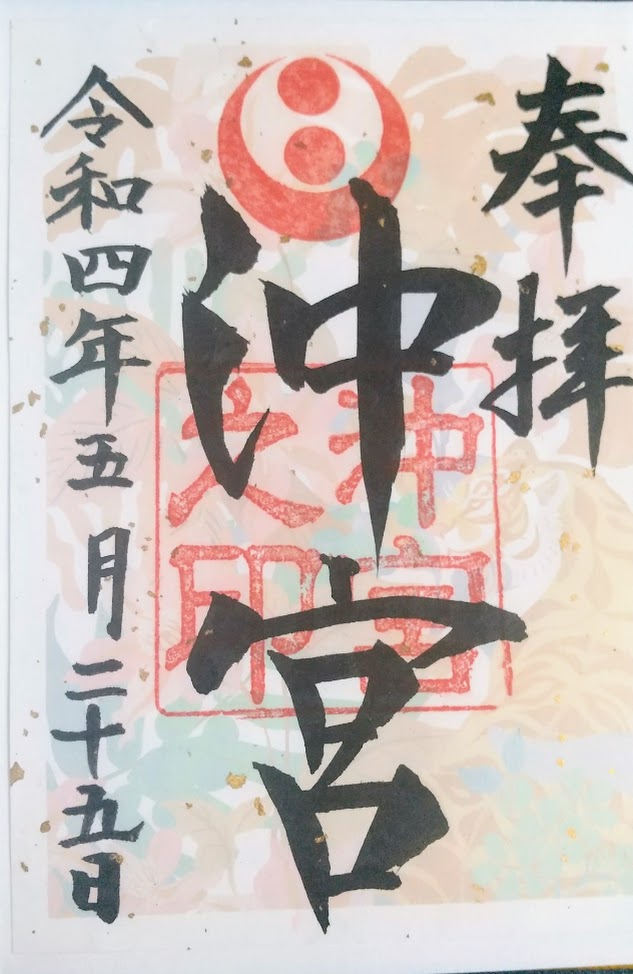 奉拝
沖宮
沖宮
之印
令和四年五月二十五日